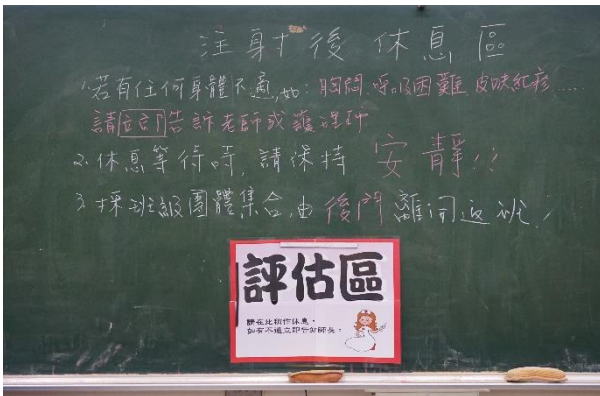 注射後休息區
1.若有任何身體不適,如:胸悶.呼吸困難.皮膚紅疹......
請立即告訴老師或護理師
2.休息等待時,請保持 安靜!!
3.採班級團體集合,由後門離開返班!
評估區
請在此稍作休息,
如有不適立即告知師長。